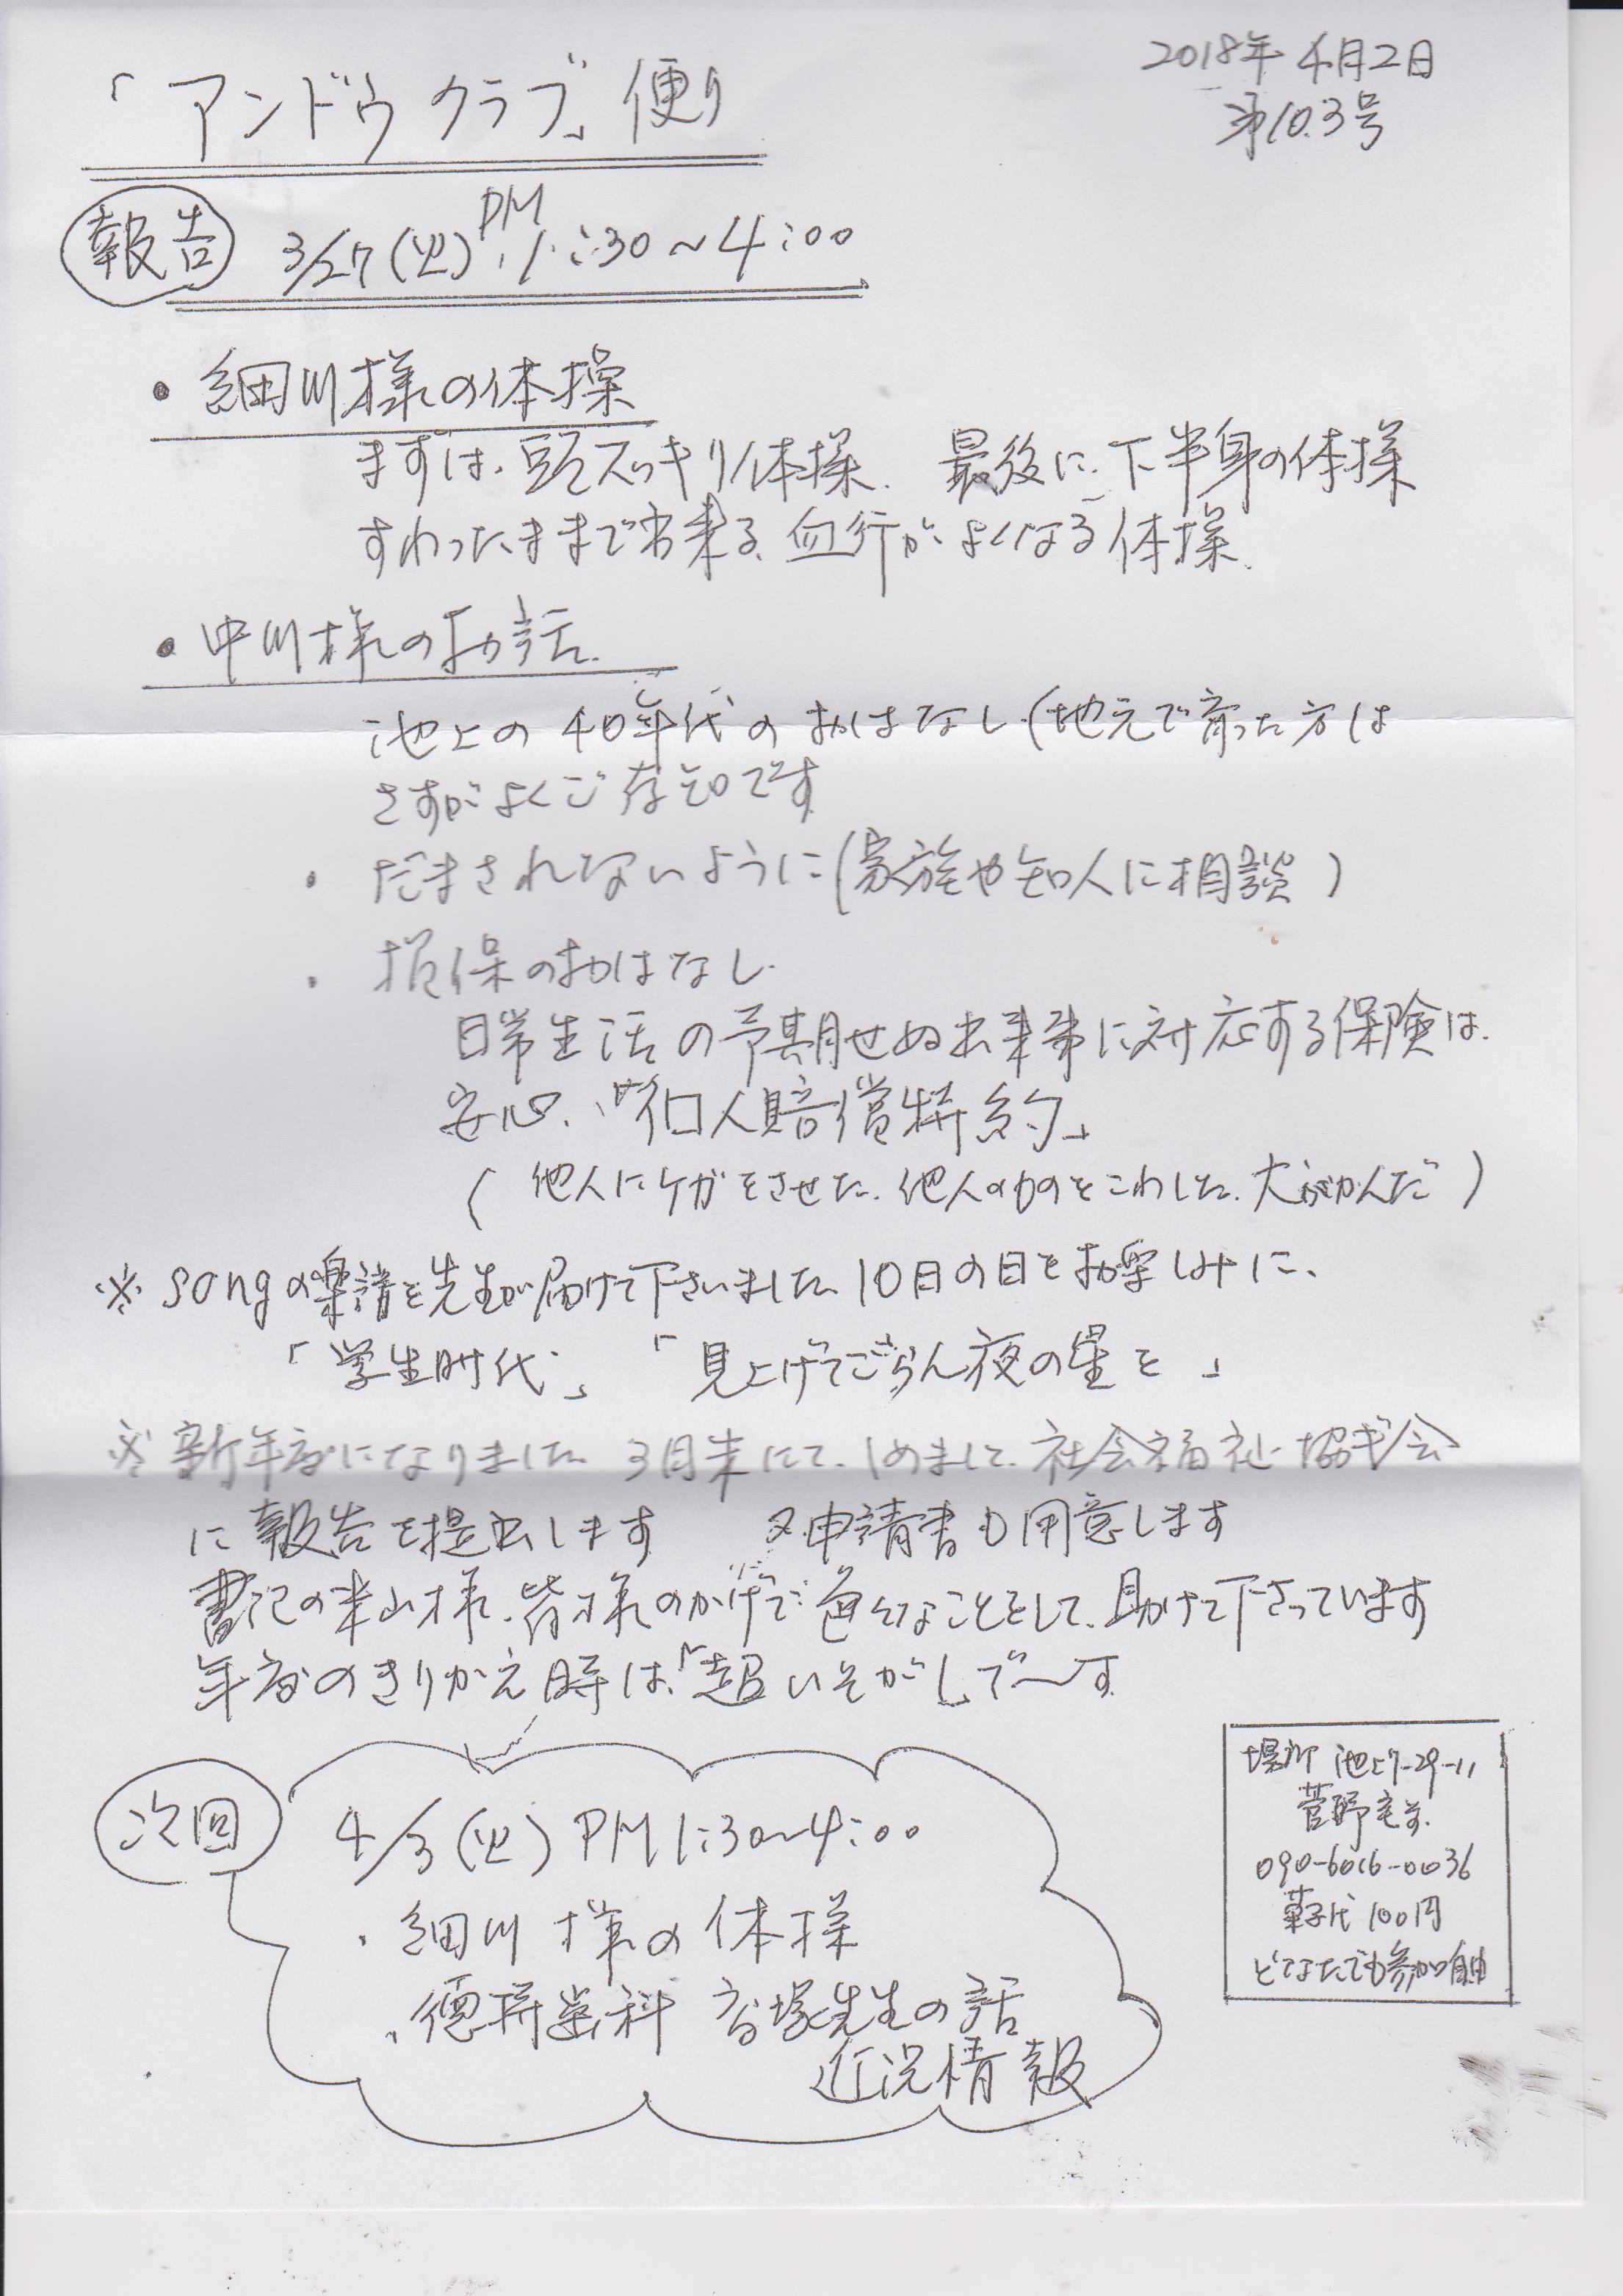 2018年4月2日
第103号
「アンドウクラブ」便り
報告 3/27(火) PM 1:30～4:00
・細川様の体操
まずは、頭スッキリ体操. 最後に、下半身の体操
すわったままで出来る、血行がよくなる体操.
・中川様のお話.
池上の40年代のおはなし(地元で育った方は
さすがよくご存知です
・だまされないように(家族や知人に相談)
・損保のおはなし.
日常生活の予期せぬ出来事に対応する保険は.
安心、「個人賠償特約」
(他人にケガをさせた、他人のものをこわした、犬がかんだ)
※songの楽譜を先生が届けて下さいました、10日の日をお楽しみに、
「学生時代」 「見上げてごらん夜の星を」
※新年度になりました 3月末にて、しめまして、社会福祉協ギ会
に報告を提出します 又申請書も用意します
書記の米山様、皆様のかげで色々なことをして、助けて下さっています
年度のきりかえ時は、「超いそがしで～す
次回 4/3(火) PM 1:30～4:00
・細川様の体操
・徳持歯科 先生の話
近況情報
場所 池上7-29-11
菅野宅
090-6016-0036
菓子代100円
どなたでも参加自由